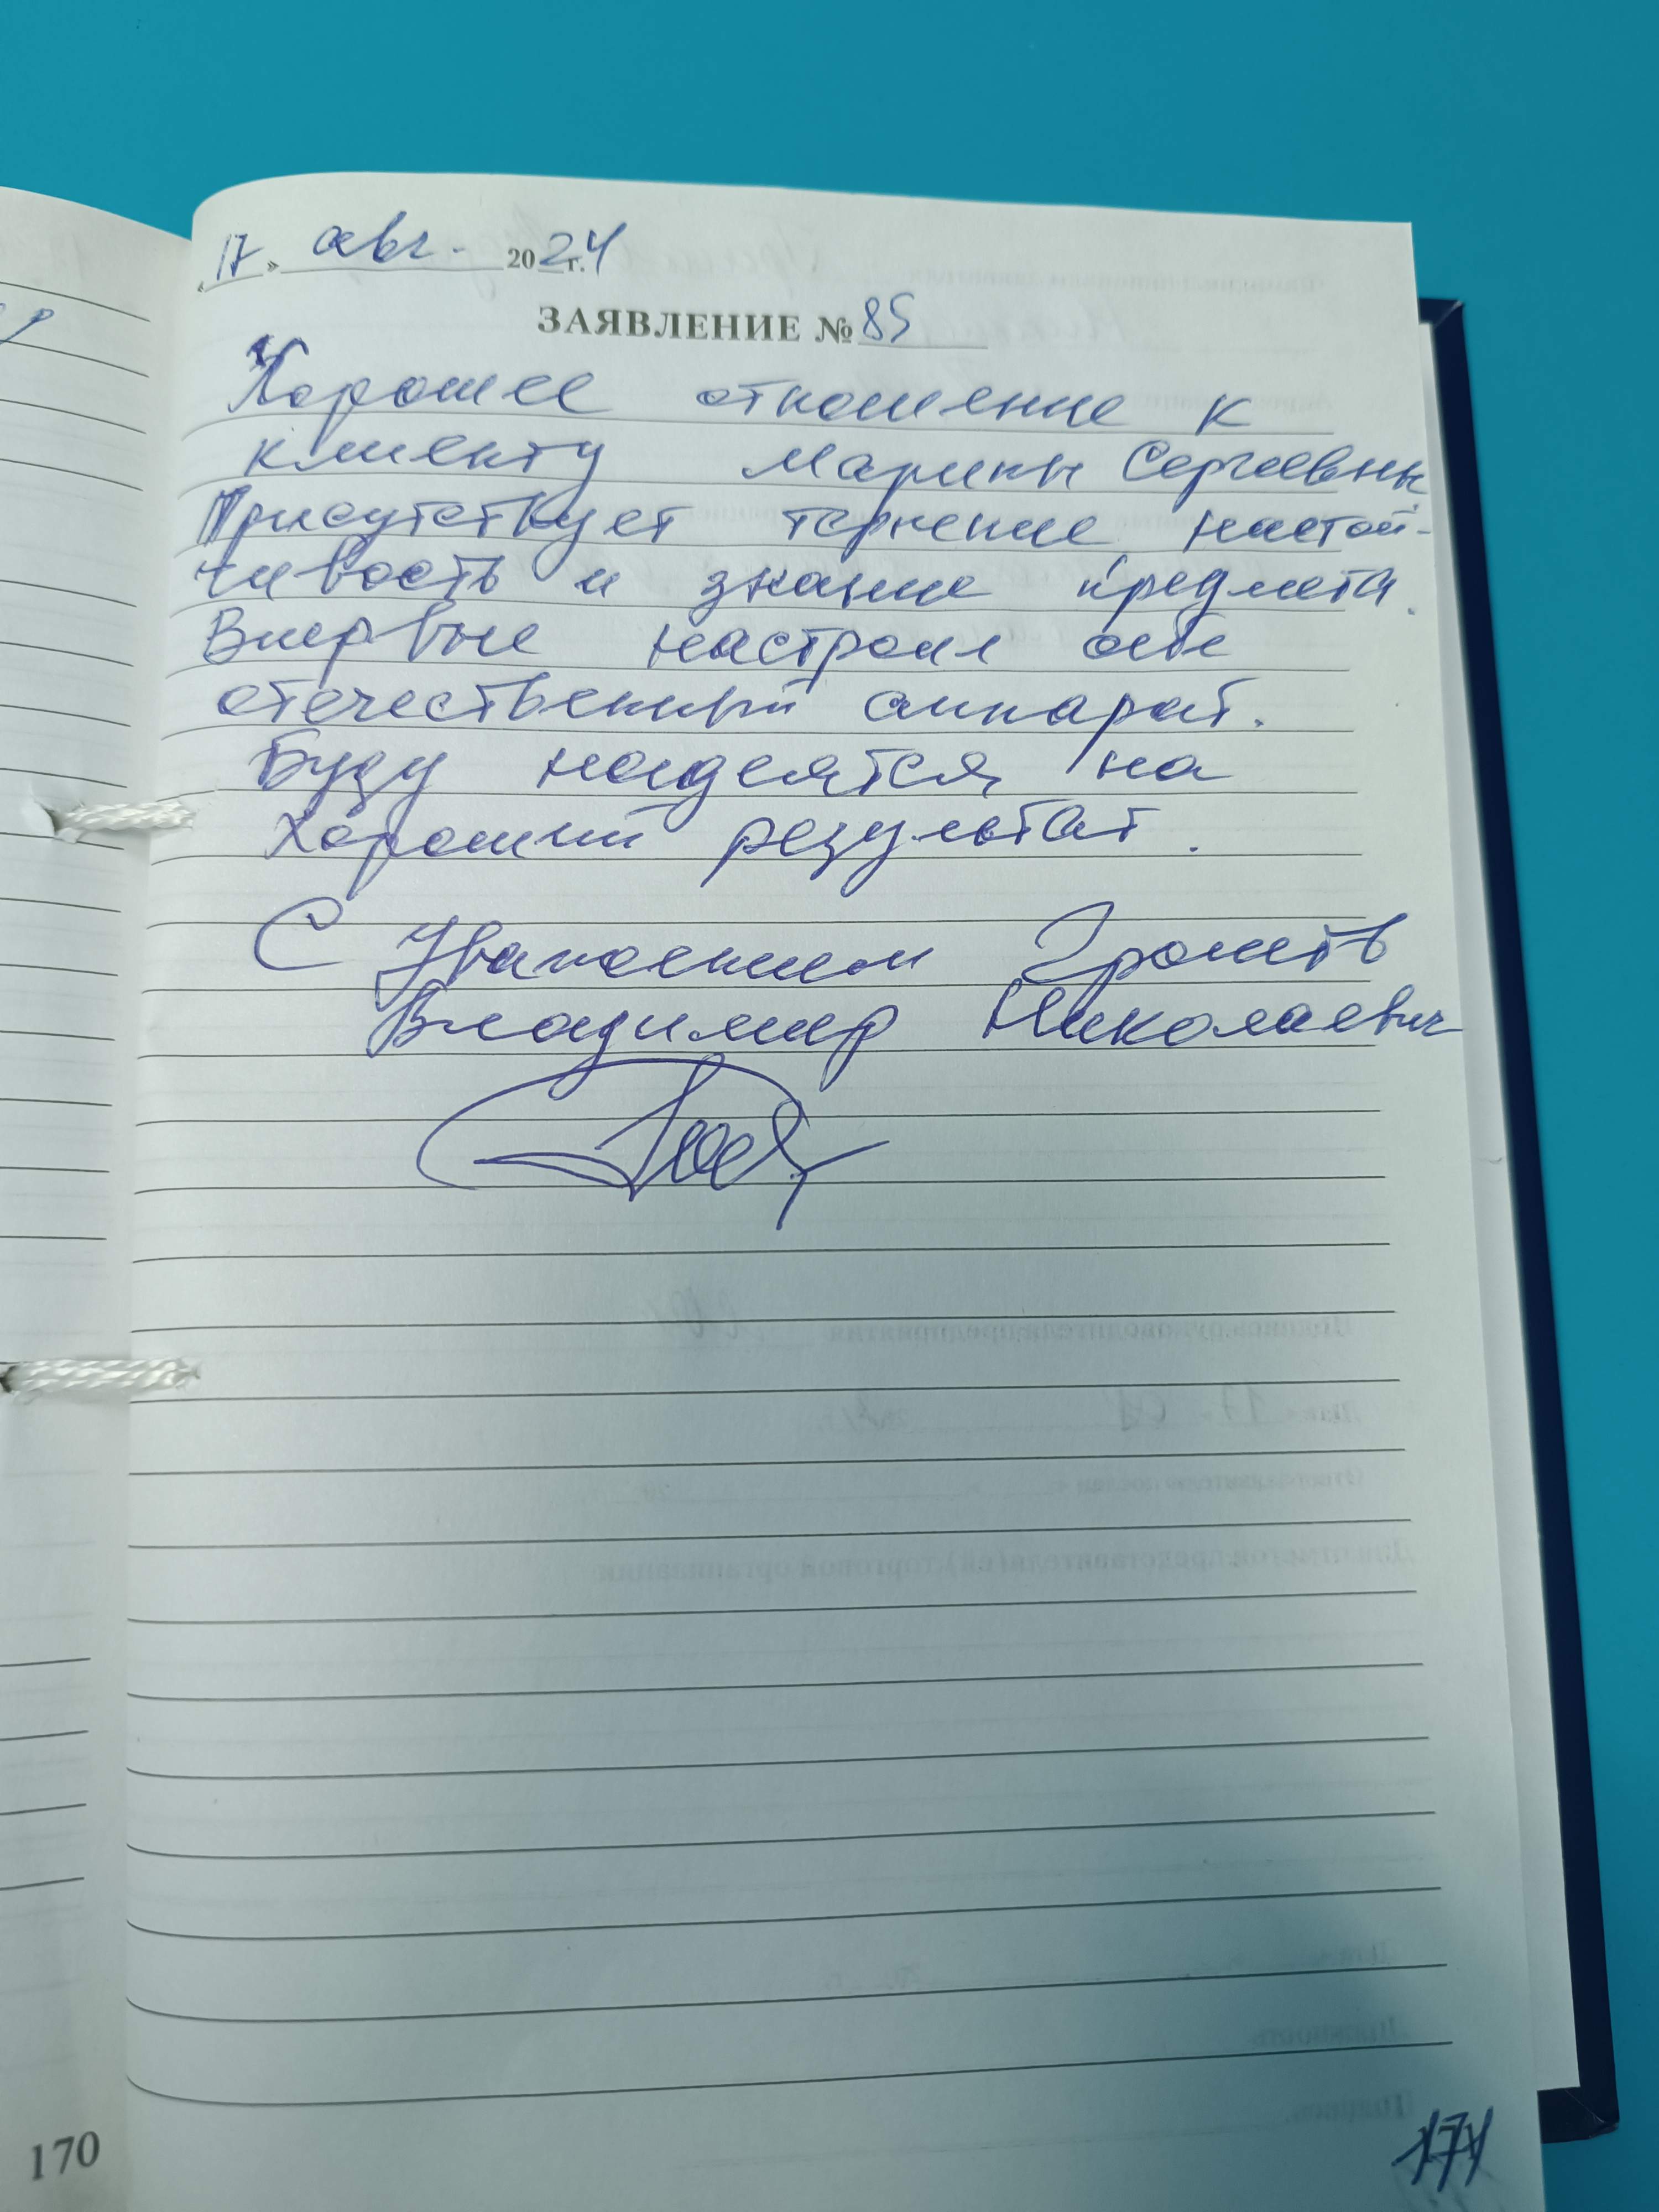 « 17 » авг. 2024 г.
ЗАЯВЛЕНИЕ № 85
Хорошее отношение к
клиенту Марины Сергеевны
Присутствует терпение настой-
чивость и знание предмета.
Впервые настроил себе
отечественный аппарат.
Буду надеятся на
хороший результат.
С Уважением
Владимир Николаевич
170
171